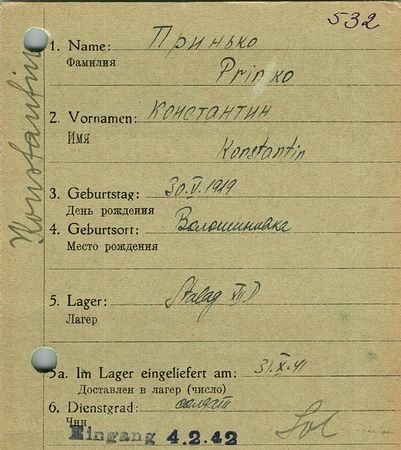 532
1. Name: Принько
Фамилия
Prinko
2. Vornamen: Константин
Имя
Konstantin
Konstantin
3. Geburtstag: 30.V.1919
День рождения
4. Geburtsort: Волошиновка
Место рождения
5. Lager: Stalag XII D
Лагер
5a. Im Lager eingeliefert am: 31.X.41
Доставлен в лагер (число)
6. Dienstgrad: солдат
Чин
Sol
Eingang 4.2.42